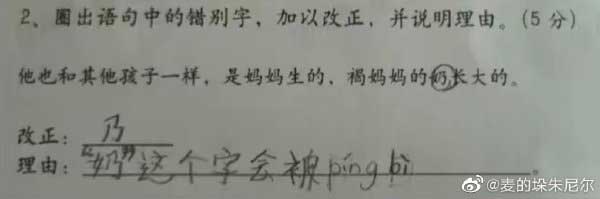 2、圈出语句中的错别字，加以改正，并说明理由。(5 分)
他也和其他孩子一样，是妈妈生的，褐妈妈的奶长大的。
改正：乃
理由："奶"这个字会被ping bi。
@麦的垛朱尼尔